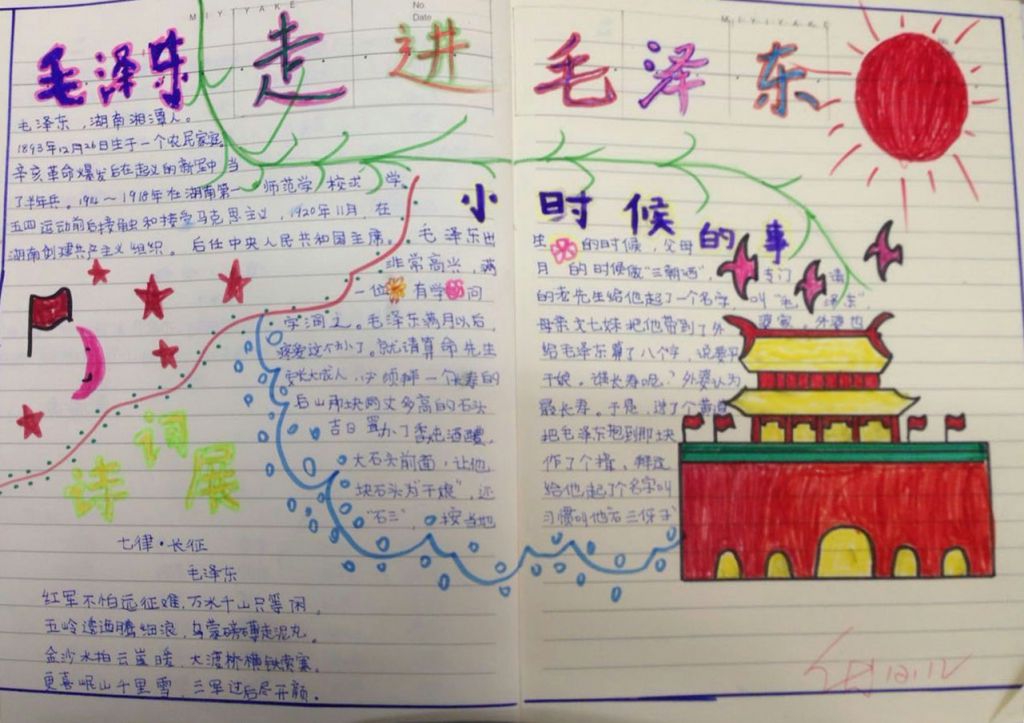 MIYIYAKE
No.
Date
MIYIYAKE
毛泽东 走进 毛泽东
毛泽东，湖南湘潭人。
1893年12月26日生于一个农民家庭
辛亥革命爆发后在起义的新军中当
了半年兵。1914～1918年在湖南第一师范学校求学。
五四运动前后接触和接受马克思主义，1920年11月，在
湖南创建共产主义组织。后任中央人民共和国主席。
小时候的事
毛泽东出生的时候，父母
非常高兴，满月的时候做"三朝酒"，专门请
一位有学问的老先生给他起了一个名字，叫"毛泽东"，
字润之。毛泽东满月以后，母亲文七妹把他带到了外婆家，外婆也
疼爱这个外了。就请算命先生给毛泽东算了八个字，说要
要长大成人，必须拜一个长寿的干娘。谁长寿呢？外婆认为
后山那块两丈多高的石头最长寿。于是，进了个黄道
吉日置办了香走酒醴，把毛泽东抱到那块
大石头前面，让他作了个揖，拜这
块石头为"干娘"，还给他起了个名字叫
"石三"，按当地习惯叫他石三伢子
诗词展
七律·长征
毛泽东
红军不怕远征难，万水千山只等闲。
五岭逶迤腾细浪，乌蒙磅礴走泥丸。
金沙水拍云崖暖，大渡桥横铁索寒。
更喜岷山千里雪，三军过后尽开颜。
12.12